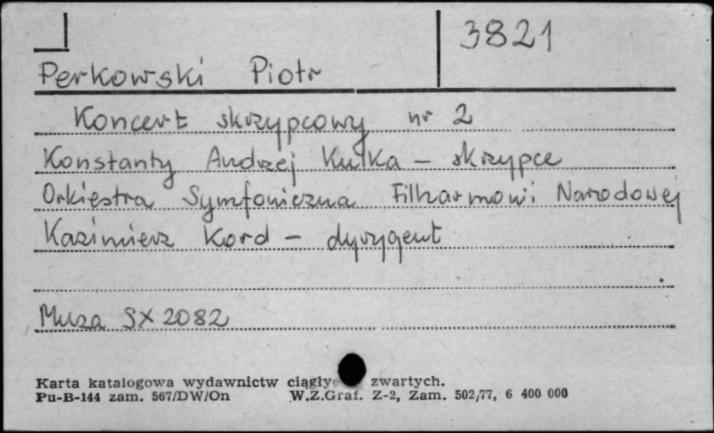 3821
Perkowski Piotr
Koncert skrzypcowy nr 2
Konstanty Andrzej Kulka - skrzypce
Orkiestra Symfoniczna Filharmonii Narodowej
Kazimierz Kord - dyrygent
Muza SX 2082
Karta katalogowa wydawnictw ciągły zwartych.
Pu-B-144 zam. 567/DW/On W.Z.Graf. Z-2, Zam. 502/77, 6 400 000